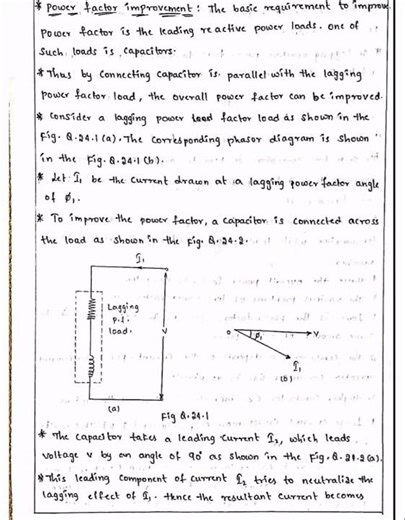 * Power factor improvement : The basic requirement to improve
power factor is the leading reactive power loads. one of
such loads is capacitors.
* Thus by connecting capacitor is parallel with the lagging
power factor load, the overall power factor can be improved.
* Consider a lagging power factor load as shown in the
Fig. Q.24.1 (a). The corresponding phasor diagram is shown
in the Fig. Q.24.1 (b).
* Let I₁ be the current drawn at a lagging power factor angle
of ϕ₁.
* To improve the power factor, a capacitor is connected across
the load as shown in the Fig. Q.24.2.
I₁
Lagging
p.f.
load.
V
O
ϕ₁
V
I₁
(a)
(b)
Fig Q.24.1
* The capacitor takes a leading current I₂, which leads
voltage V by an angle of 90° as shown in the Fig. Q.24.2 (a).
* This leading component of current I₂ tries to neutralize the
lagging effect of I₁. Hence the resultant current becomes